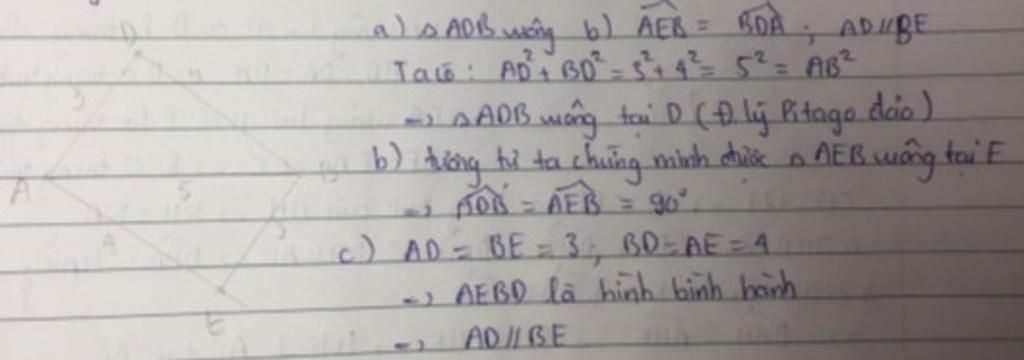 a) △ADB vuông b) AEB = BDA ; AD // BE
Ta có : AD² + BD² = 3² + 4² = 5² = AB²
→ △ADB vuông tại D (Đ lý Pitago đảo)
b) tương tự ta chứng minh được △AEB vuông tại E
→ ADB = AEB = 90°
c) AD = BE = 3 ; BD = AE = 4
→ AEBD là hình bình hành
→ AD // BE
D
3
4
A
5
B
4
3
E